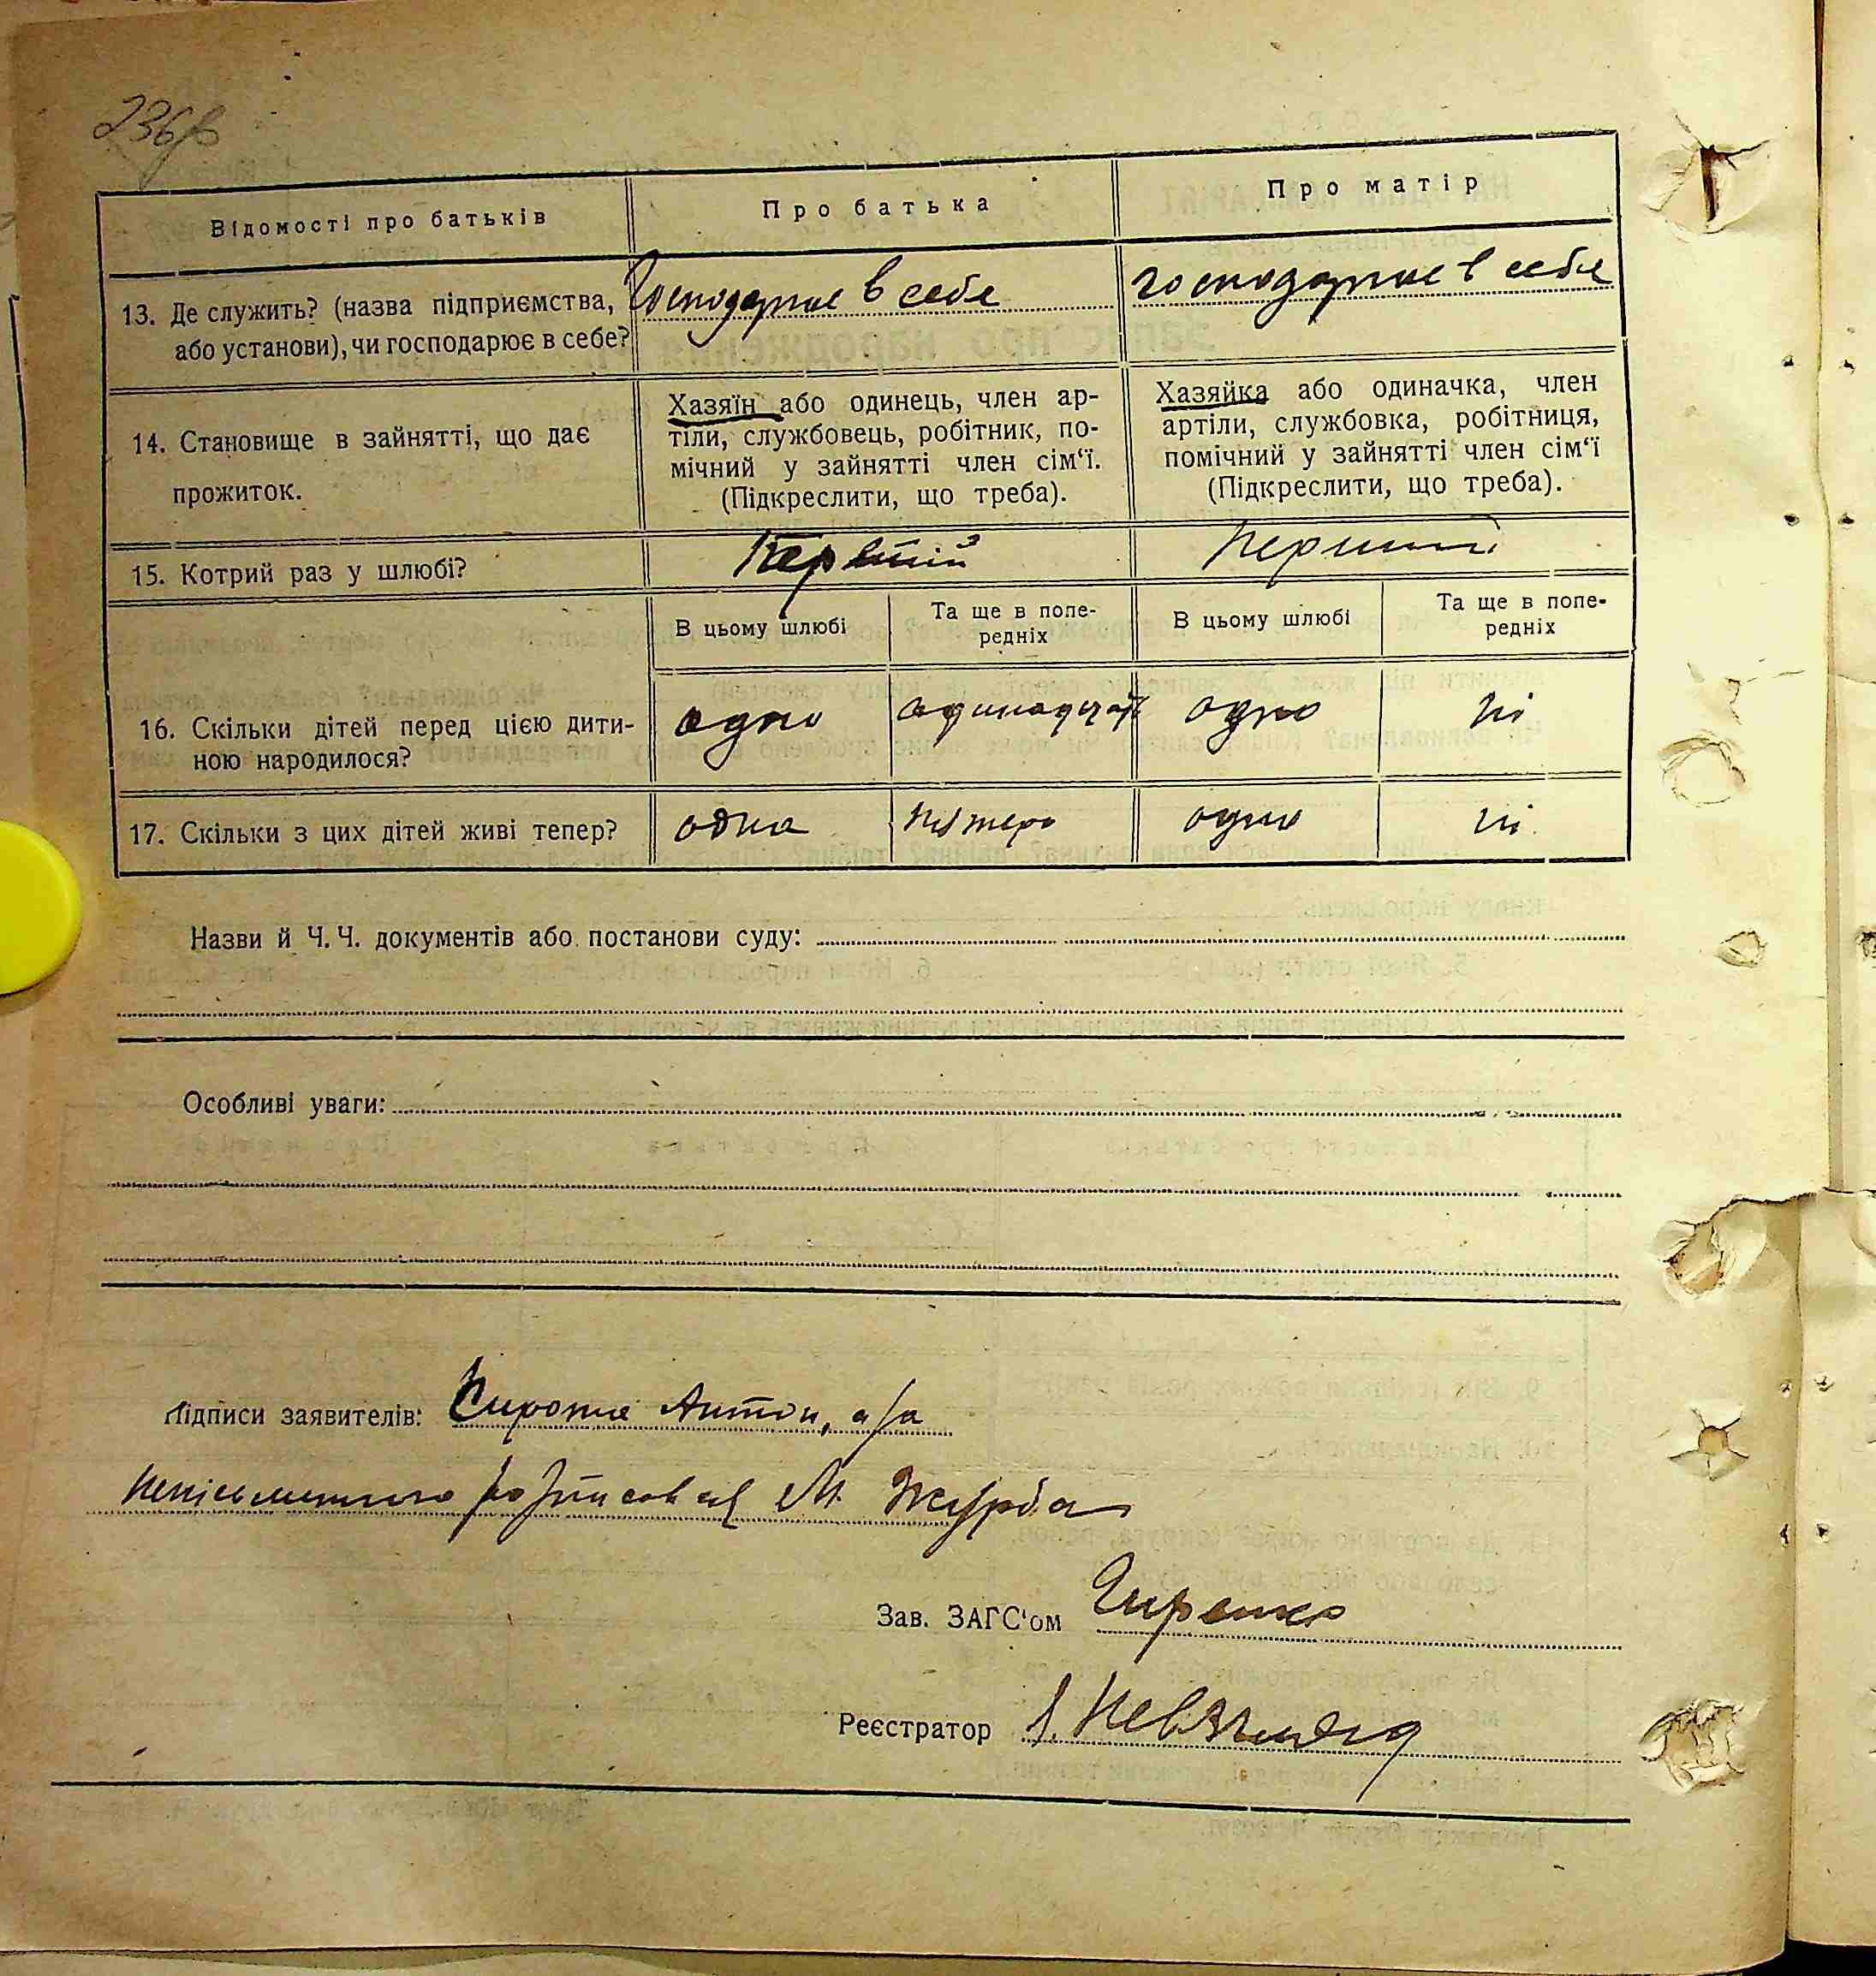 236
Відомості про батьків
Про батька
Про матір
13. Де служить? (назва підприємства,
або установи), чи господарює в себе?
Господарює в себе
господарює в себе
14. Становище в зайнятті, що дає
прожиток.
Хазяїн або одинець, член ар-
тіли, службовець, робітник, по-
мічний у зайнятті член сім‘ї.
(Підкреслити, що треба).
Хазяйка або одиначка, член
артіли, службовка, робітниця,
помічний у зайнятті член сім‘ї
(Підкреслити, що треба).
15. Котрий раз у шлюбі?
Перший
В цьому шлюбі
Та ще в попе-
редніх
В цьому шлюбі
Та ще в попе-
редніх
16. Скільки дітей перед цією дити-
ною народилося?
одно
одно
ні
17. Скільки з цих дітей живі тепер?
одна
одно
ні
Назви й Ч. Ч. документів або постанови суду:
Особливі уваги:
Підписи заявителів: Антон, а за
М. Журба
Зав. ЗАГС‘ом
Реєстратор